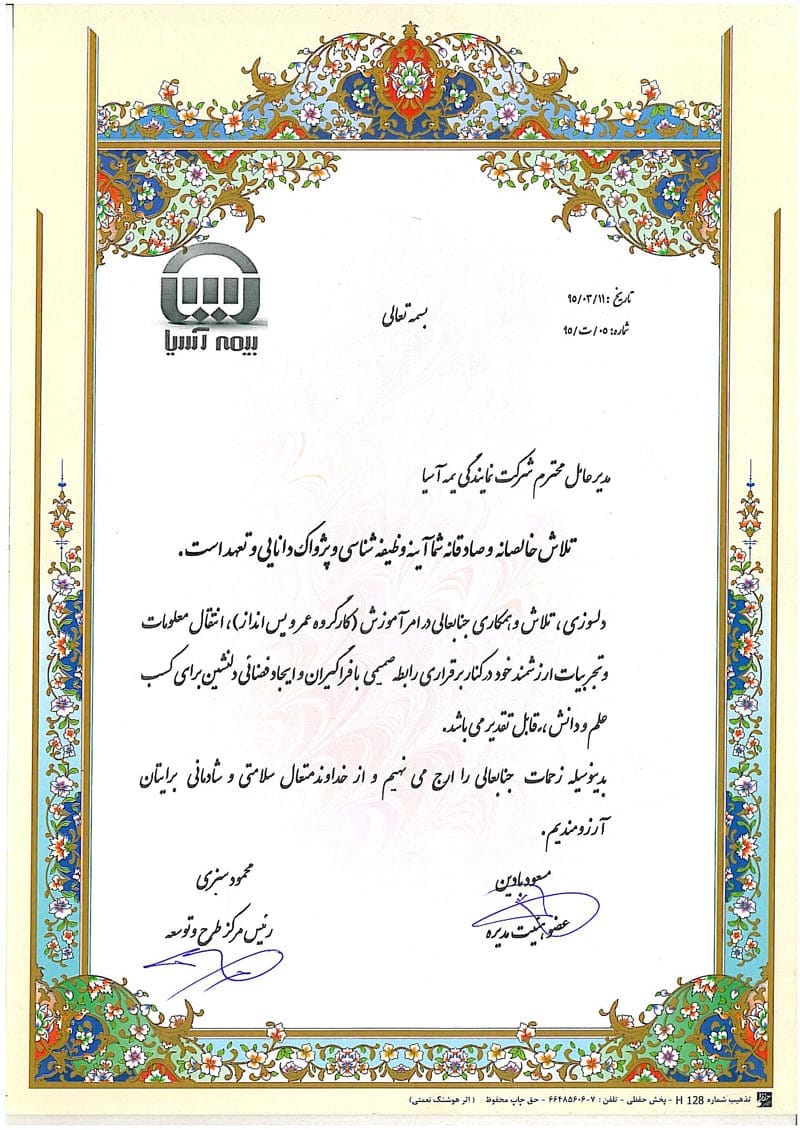 تاریخ : ۹۵/۰۳/۱۱
بسمه تعالی
شماره: ۰۵/ت/۹۵
بیمه آسیا
مدیرعامل محترم شرکت نمایندگی بیمه آسیا
تلاش خالصانه و صادقانه شما آینه وظیفه شناسی و پژواک دانایی و تعهد است.
دلسوزی، تلاش و همکاری جنابعالی در امر آموزش (کارگروه عمر و پس انداز)، انتقال معلومات
و تجربیات ارزشمند خود در کنار برقراری رابطه صمیمی با فراگیران و ایجاد فضائی دلنشین برای کسب
علم و دانش ،،قابل تقدیر می باشد.
بدینوسیله زحمات جنابعالی را ارج می نهیم و از خداوند متعال سلامتی و شادمانی برایتان
آرزومندیم.
مسعود بادین
محمود سبزی
عضو هیئت مدیره
رئیس مرکز طرح و توسعه
تذهیب شماره H 128 - پخش حفظی - تلفن : ۷-۶۶۴۸۵۶۰۶ - حق چاپ محفوظ (اثر هوشنگ نعمتی)